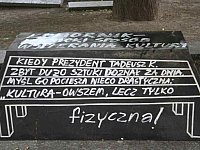 KIEDY PREZYDENT TADEUSZ K.
ZBYT DUŻO SZTUKI DOZNAŁ ZA DNIA,
MYŚL GO POCIESZA NIECO DRASTYCZNA:
„KULTURA-OWSZEM, LECZ TYLKO
fizyczna!